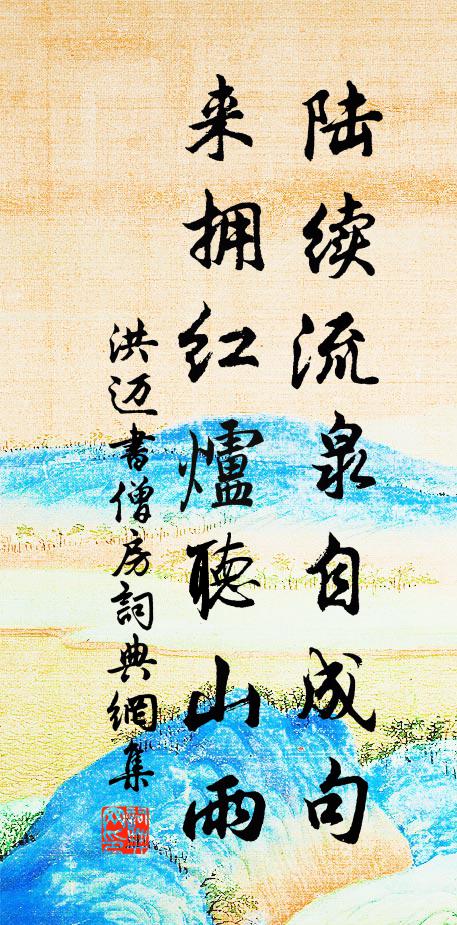 陆续流泉自成句
来拥红爐聽山雨
洪迈書僧房詞典網集